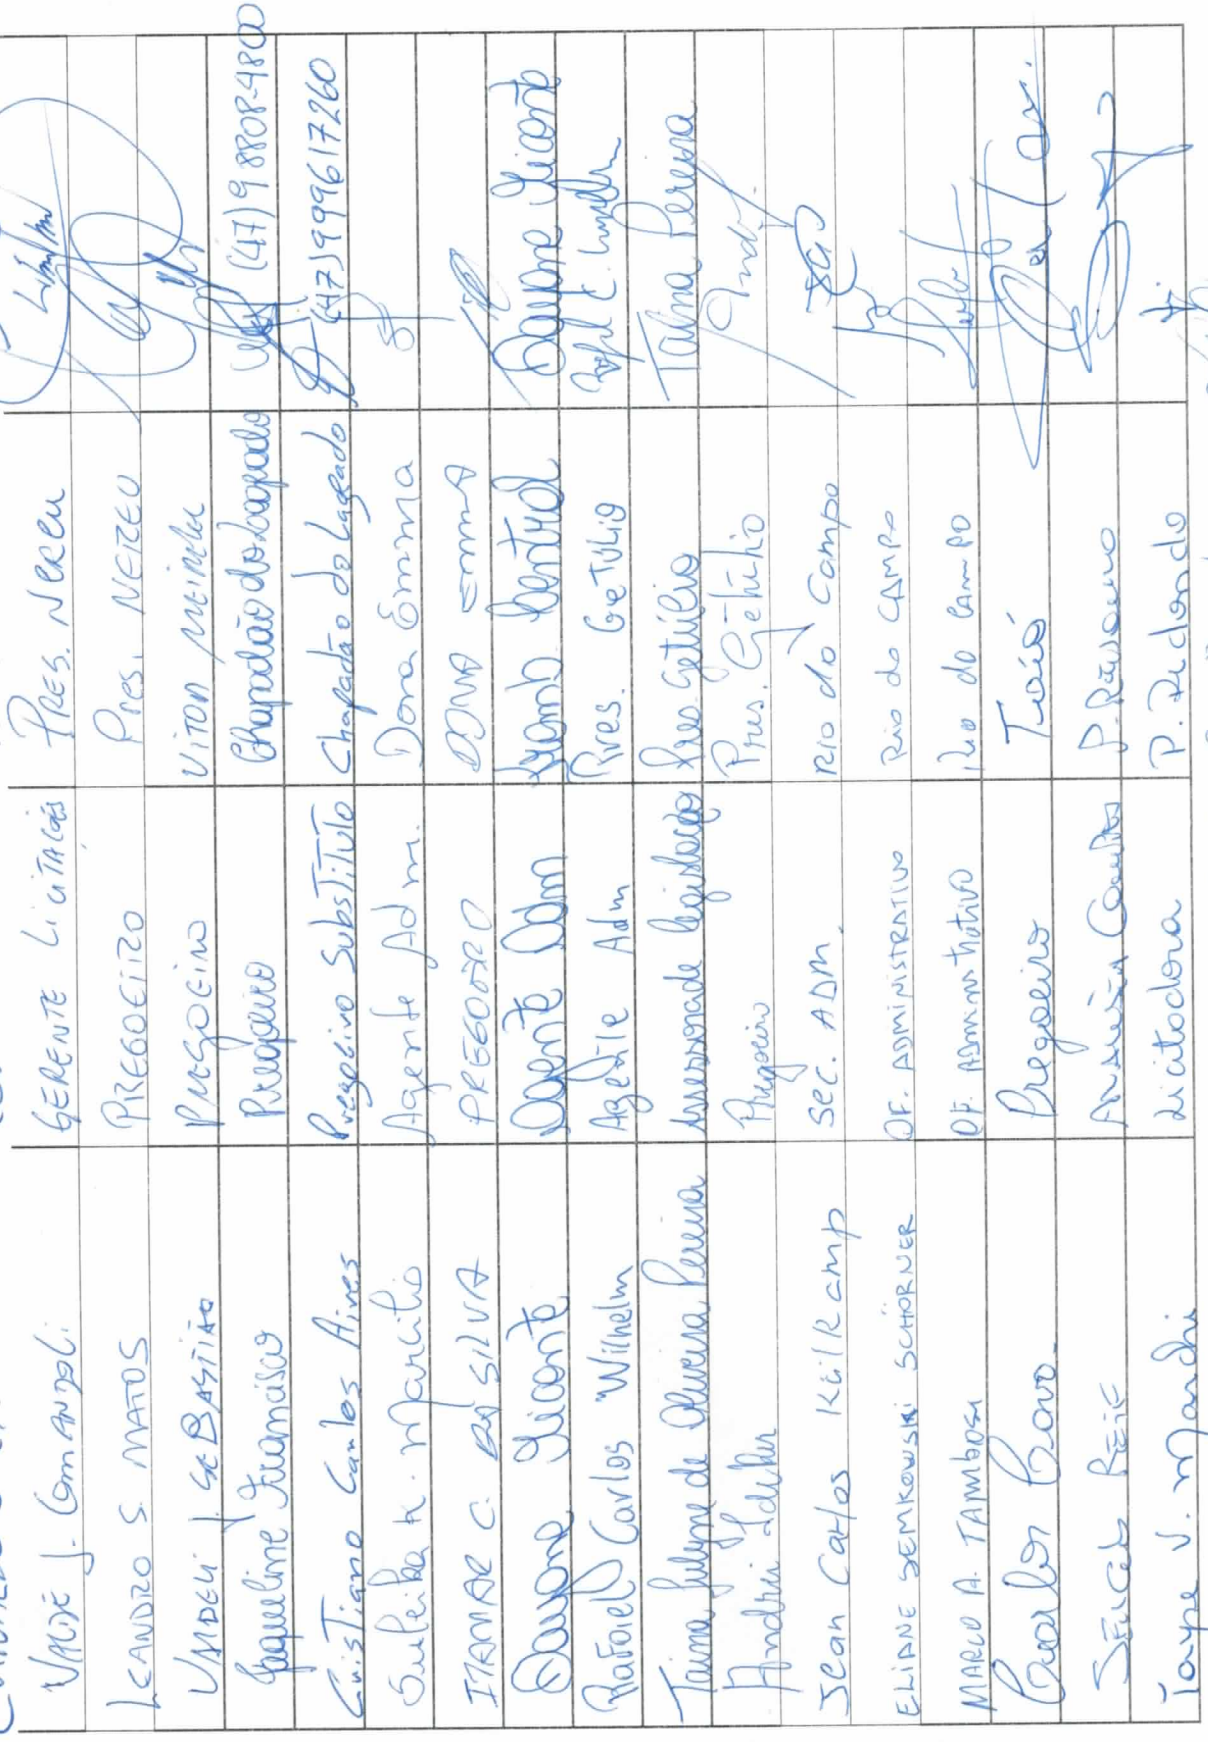 GERENTE LICITAÇÕES PRES. NEREU
LEANDRO S. MATOS PREGOEIRO Pres. NEREU
PREGOEIRO VITOR MEIRELES
Jaqueline Francisco Pregoeiro Chapadão do Lageado (47) 98808-4800
Cristiano Carlos Alves Pregoeiro Substituto Chapadão do Lageado (47) 999617260
Suleika K. Marchio Agente Adm. Dona Emma
ITAMAR C. DA SILVA PREGOEIRO DONA EMMA
Dayane Agente Adm Central Dayane
Rafael Carlos Wilhelm Agente Adm Pres. GeTULIO
Taina Julyne de Oliveira Pereira Assessora de legislação Pres. Getúlio Taina Pereira
Andrei Pregoeiro Pres. Getúlio
Jean Carlos Keilkamp Sec. ADM. Rio do Campo
ELIANE SEMKOWSKI SCHORNER OF. ADMINISTRATIVO Rio do CAMPO
MARCO A. TAMBOSI OF. Administrativo Rio do Campo
Carlos Pregoeiro Taió
P. Redondo
Tayse V. Licitadora P. Redondo